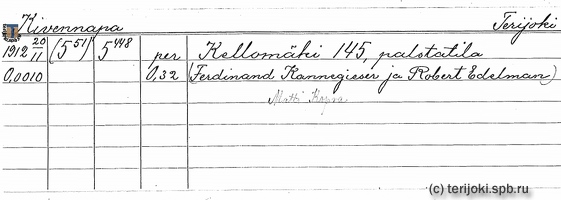 Kivennapa Terijoki
1912 20/11 (5 51) 5 448 per Kellomäki 145, palstatila
0,0010 0,32 (Ferdinand Kannegieser ja Robert Edelman)
Matti
(c) terijoki.spb.ru